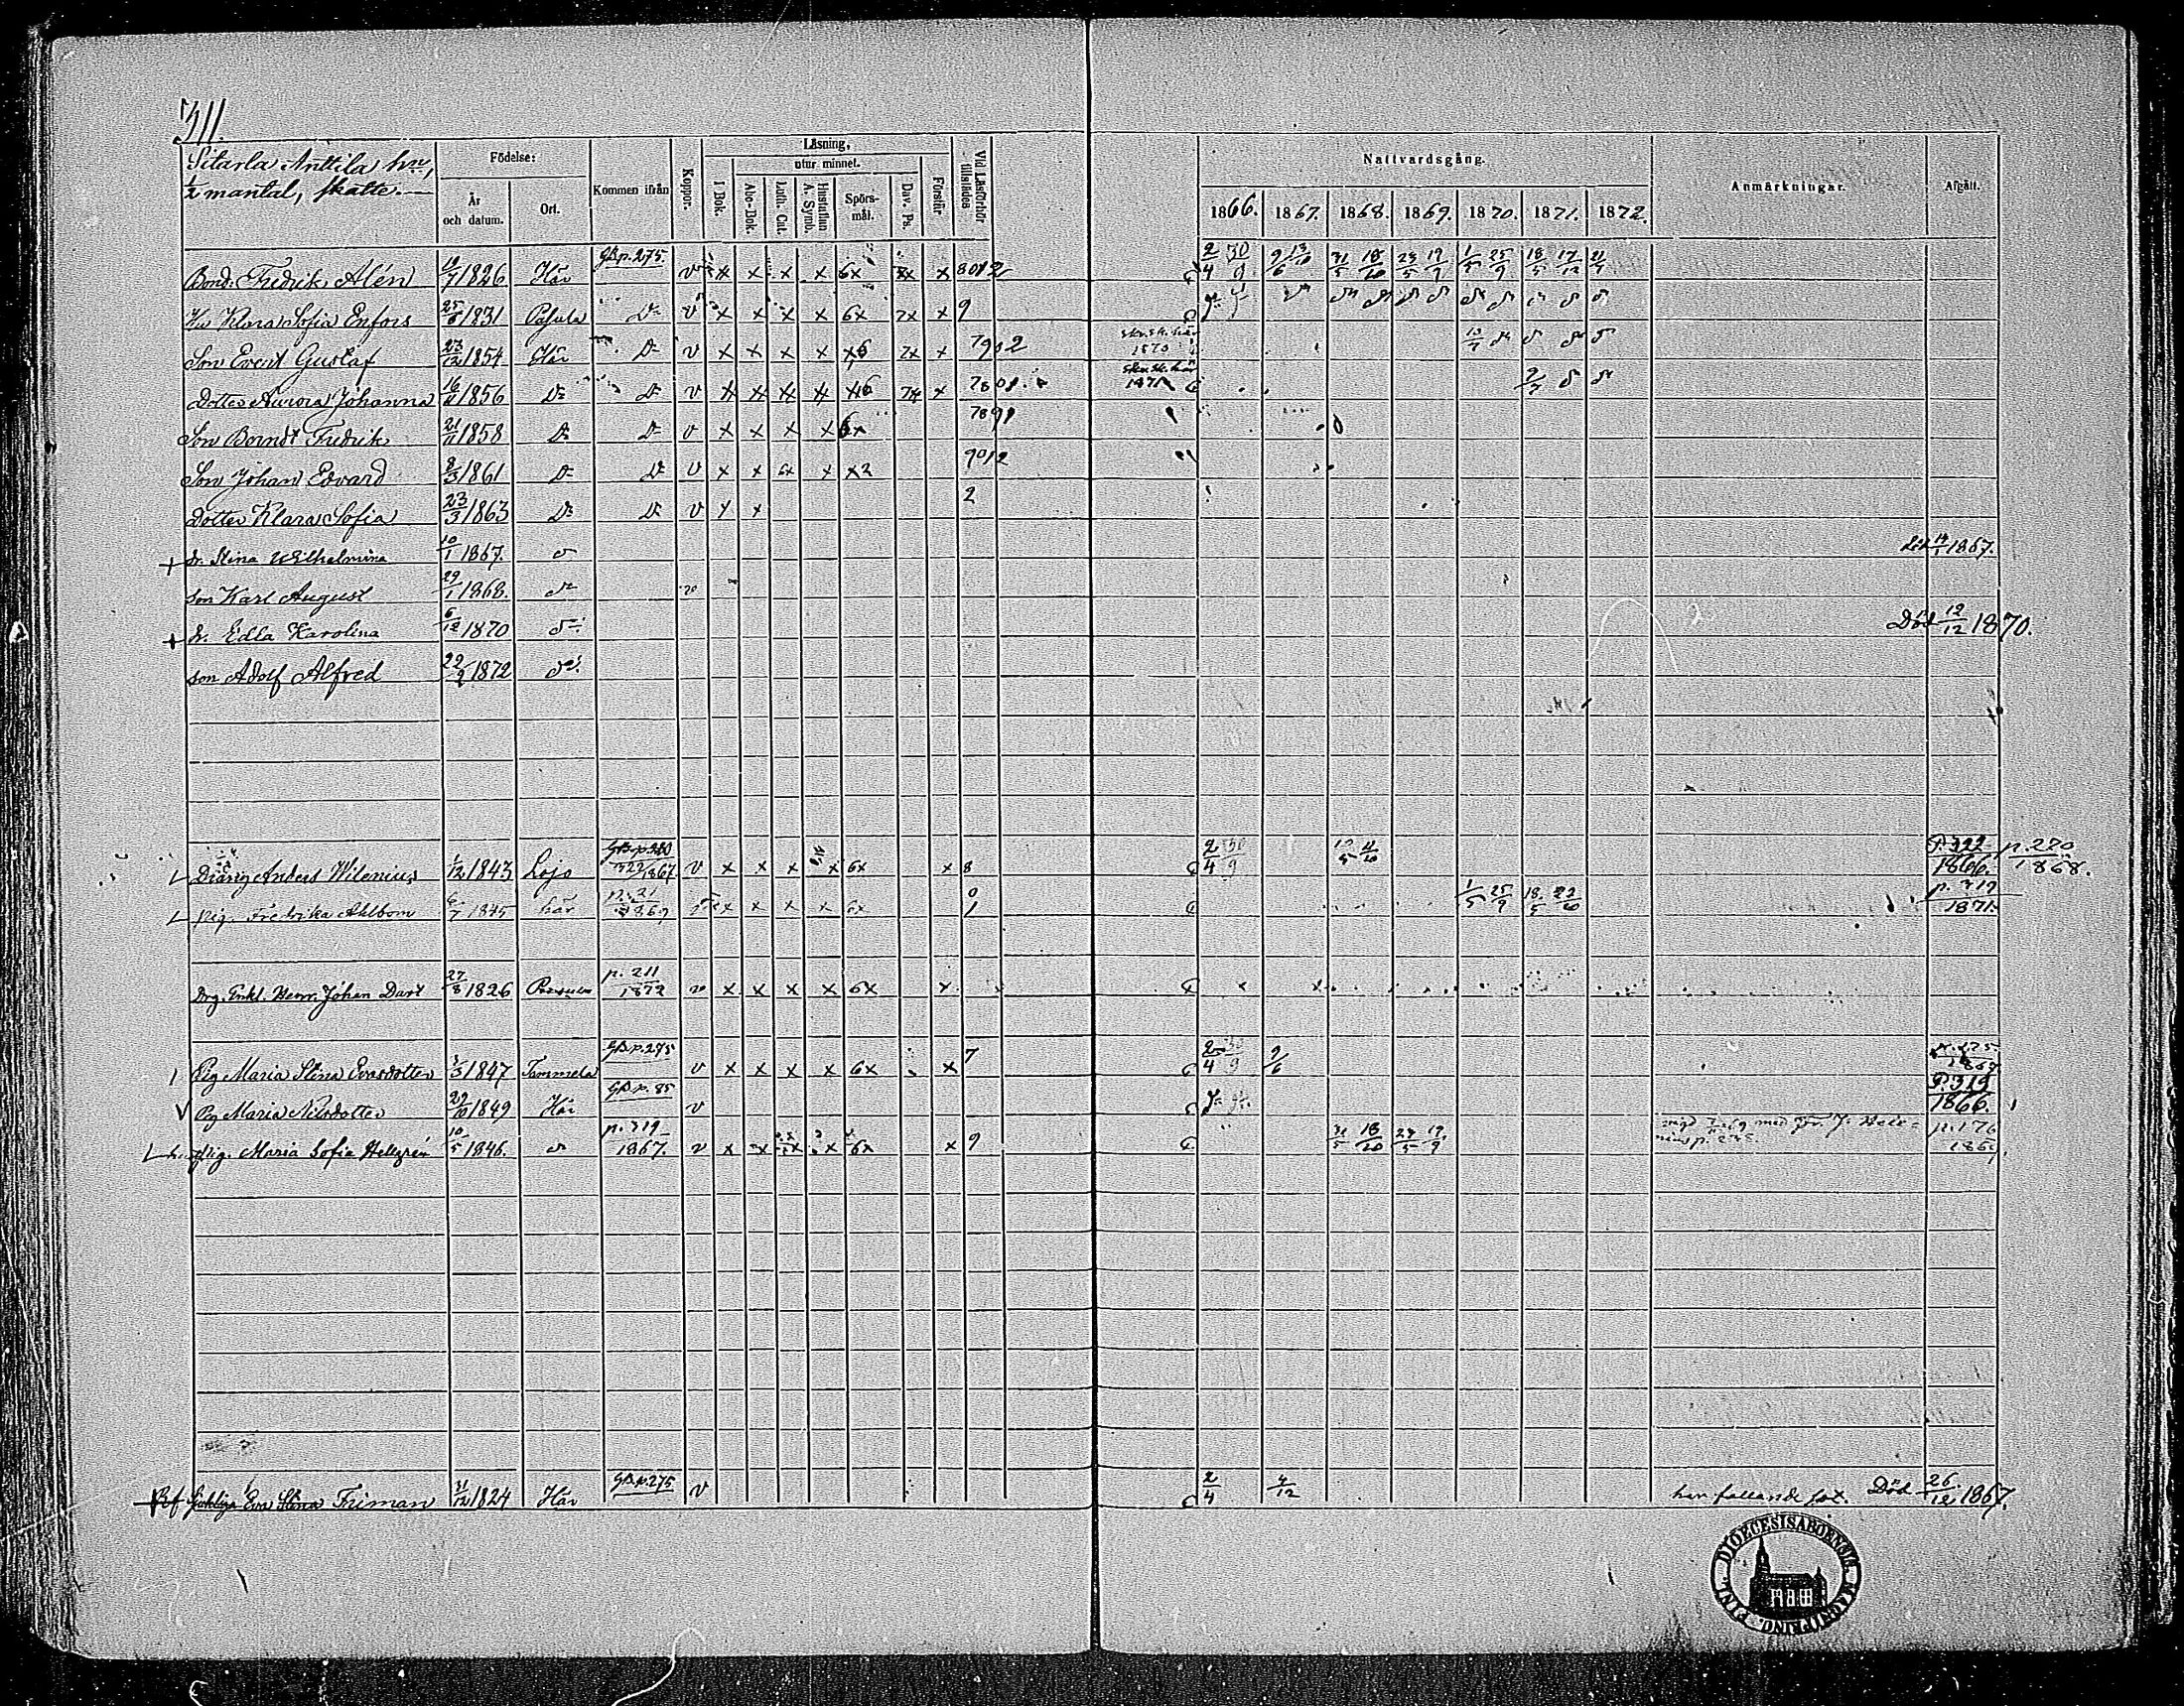 311.
Sitarla Anttila hn,
1/2 mantal, skatte.
Födelse:
År och datum.
Ort.
Kommen ifrån
Koppor.
Läsning,
utur minnet.
I Bok.
Abc-Bok.
Luth. Cat.
Hustaflan A. Symb.
Spörsmål.
Dav. Ps.
Förstår
Vid Läsförhör tillstädes
Nattvardsgång.
1866. 1867. 1868. 1869. 1870. 1871. 1872.
Anmärkningar.
Afgått.
Bond. Fredrik Alén 19/7 1826 Här GB p. 275 v x x x x 6x x 8012 2/4 30/9 9/6 13/10 31/5 18/10 23/5 19/9 1/5 25/9 18/5 17/12 21/4
Hu Klara Sofia Enfors 25/6 1831 D:o v x x x x 6x 7x x 9
Son Evert Gustaf 23/12 1854 Här D:o v x x x x x6 7x x 7902 1870
Dotter Aurora Johanna 16/11 1856 D:o D:o v x x x x x6 7x x 7801 1871
Son Berndt Fredrik 21/11 1858 D:o D:o v x x x x 6x 7891
Son Johan Edvard 8/3 1861 D:o D:o v x x 6x x x2 9012
Dotter Klara Sofia 23/3 1863 D:o D:o v x x 2
+ dr. Stina Wilhelmina 10/1 1867. d:o död 14/1 1867.
son Karl August 29/1 1868. d:o v
+ dr. Edla Karolina 6/12 1870 d:o Död 12/12 1870.
son Adolf Alfred 22/2 1872 d:o
Dräng Anders Wilenius 1/12 1843 Lojo 322/1867. v x x x x 6x x 8 2/4 30/9 P. 322 1866. p. 220 1868.
Pig. Fredrika Ahlbom 6/7 1845 här p. 21 1869 x x x x 6x 0 1 1/5 25/9 18/5 22/10 p. 319 1871.
Drg. Enkl. Henr. Johan Dart 27/8 1826 p. 211 1872 v x x x x 6x x
Pig Maria Stina Evasdotter 1847 Tammela GB p. 275 v x x x x 6x x 7 2/4 30/9 9/6
Pig Maria Nilsdotter 29/10 1849 Här GB p. 85 v P. 319 1866.
Pig. Maria Sofia Hellgrén 10/5 1846. d:o p. 319 1867. v x x x x 6x x 9 31/5 18/10 23/5 19/9 p. 176
Eva Stina Friman 31/12 1824 Här GB p. 275 v 2/4 4/12 har fallande sot. Död 26/12 1867.
DIOECESIS ABOENSIS MAGNI PRINC. FINL.